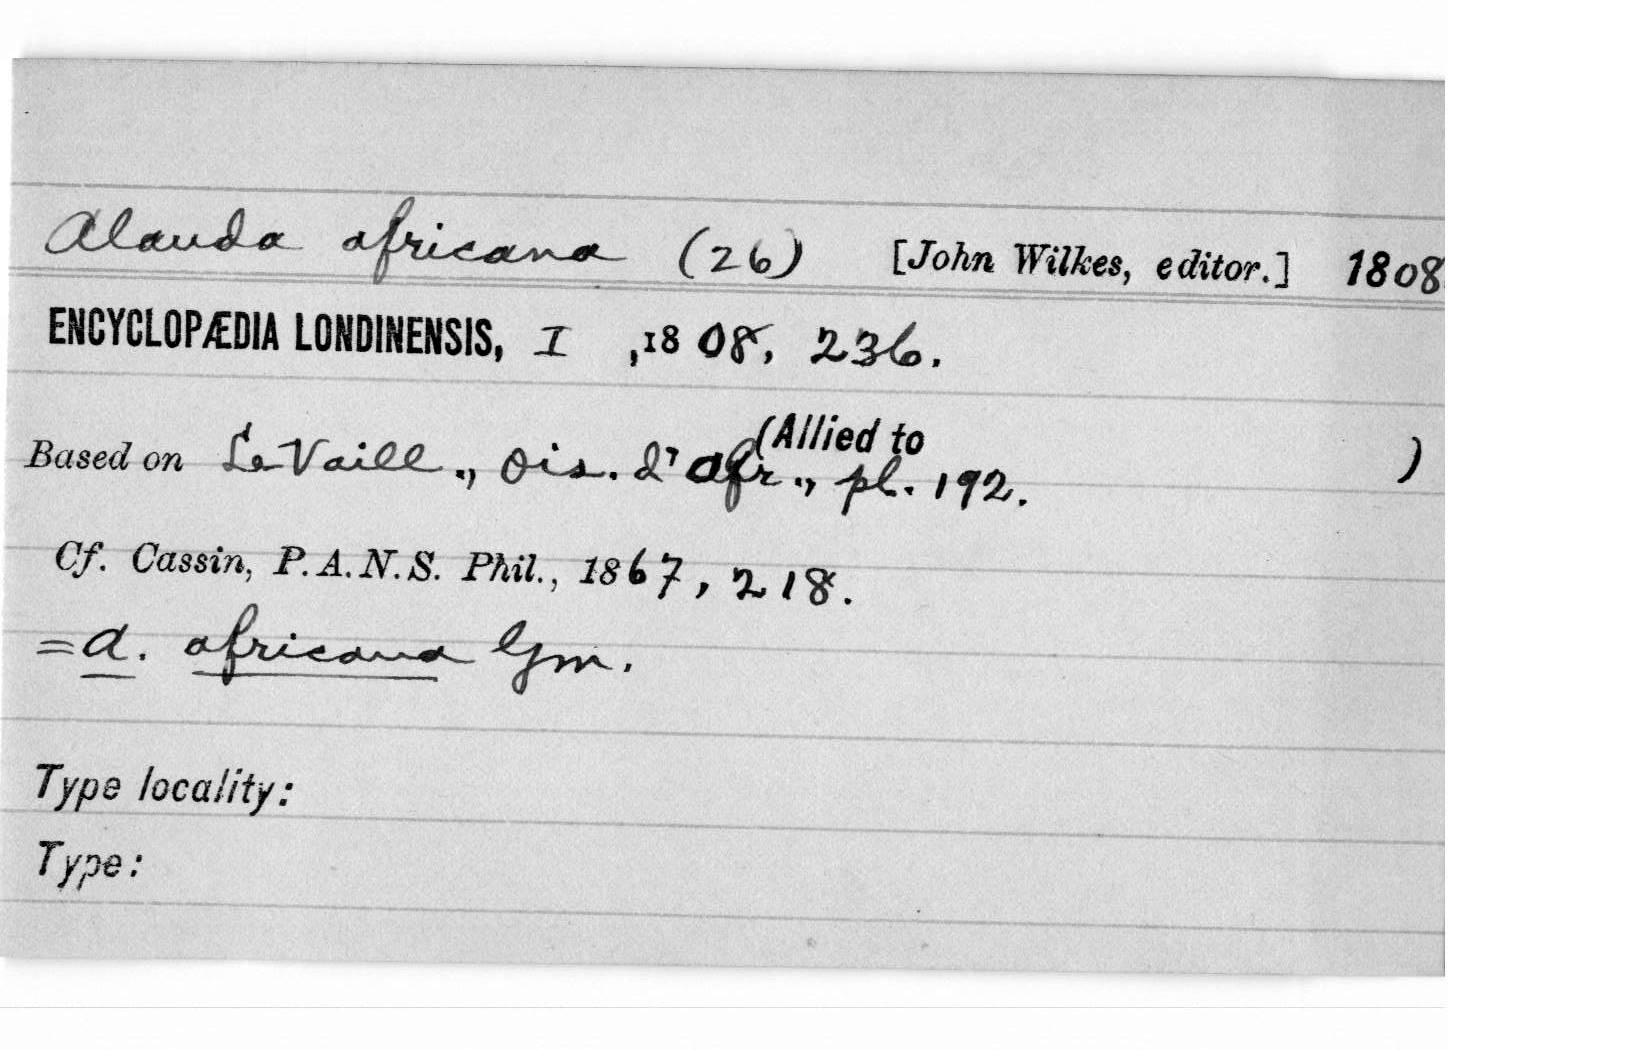 Alauda africana (26) [John Wilkes, editor.] 1808
ENCYCLOPÆDIA LONDINENSIS, I ,1808, 236.
(Allied to )
Based on Le Vaill., Ois. d'Afr., pl. 192.
Cf. Cassin, P.A.N.S. Phil., 1867, 218.
=A. africana Gm.
Type locality:
Type: